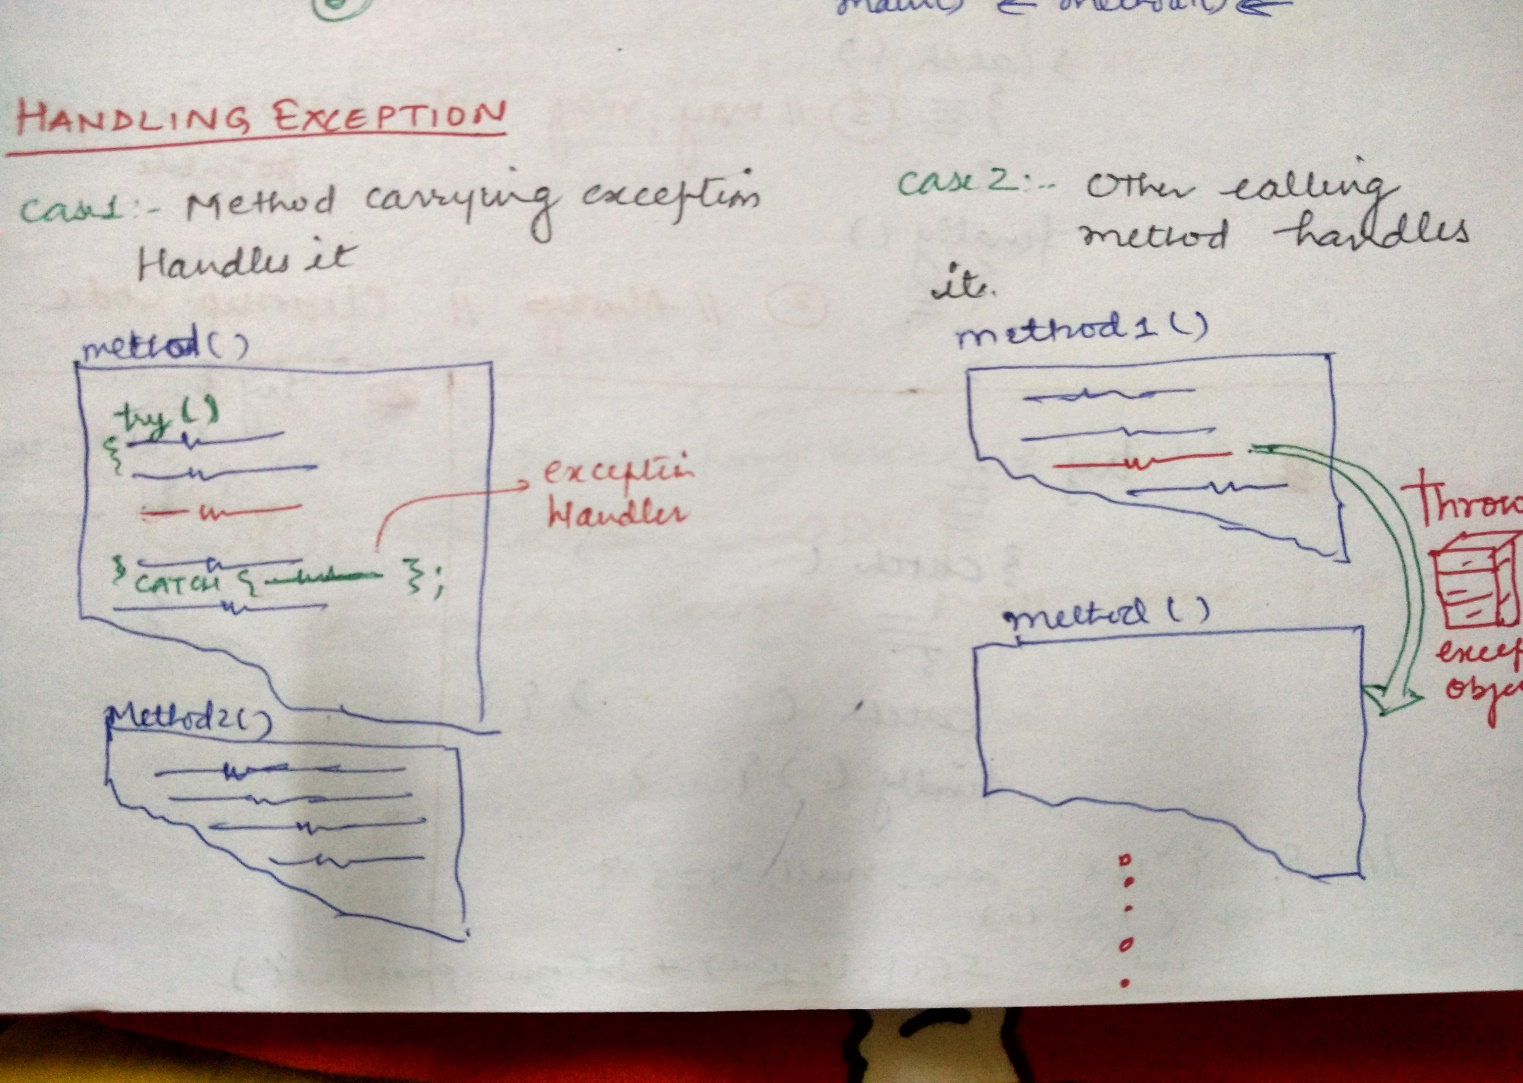 main() ← method1() ←
HANDLING EXCEPTION
case1:- Method carrying exception
Handles it
method()
try()
{
}
CATCH { };
exception
Handler
Method2()
case 2:-- Other calling
method handles
it.
method1()
Throw
method()
excep
obje